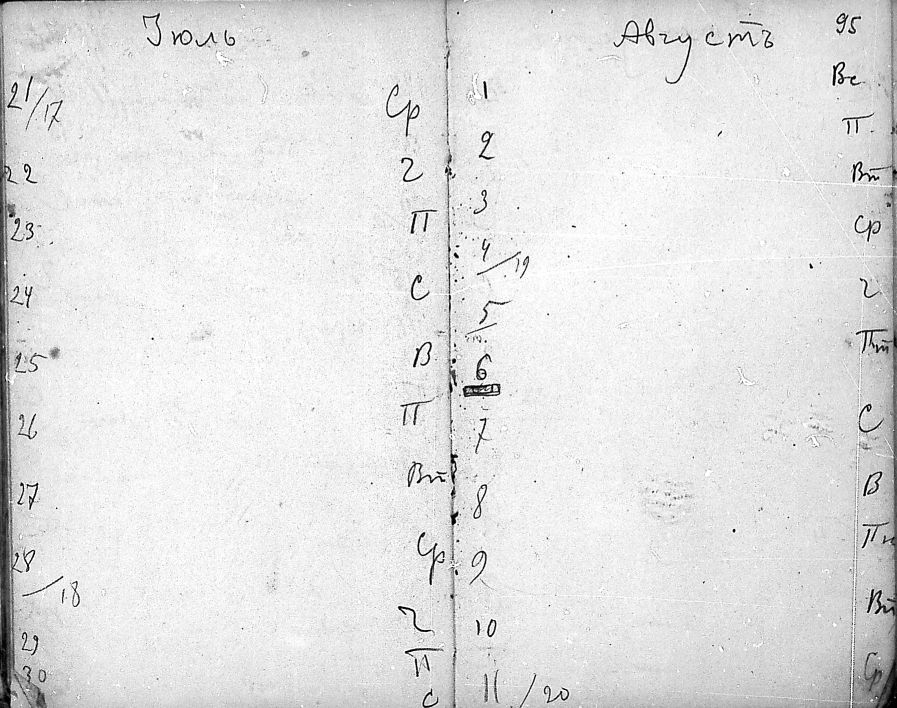 Iюль
21/17 Ср
22 Ч
23 П
24 С
25 В
26 П
27 Вт
28/18 Ср
29 Ч
30 П
С
Августъ 95
1 Вс
2 П
3 Вт
4/19 Ср
5 Ч
6 Пт
7 С
8 В
9 Пн
10 Вт
11/20 Ср